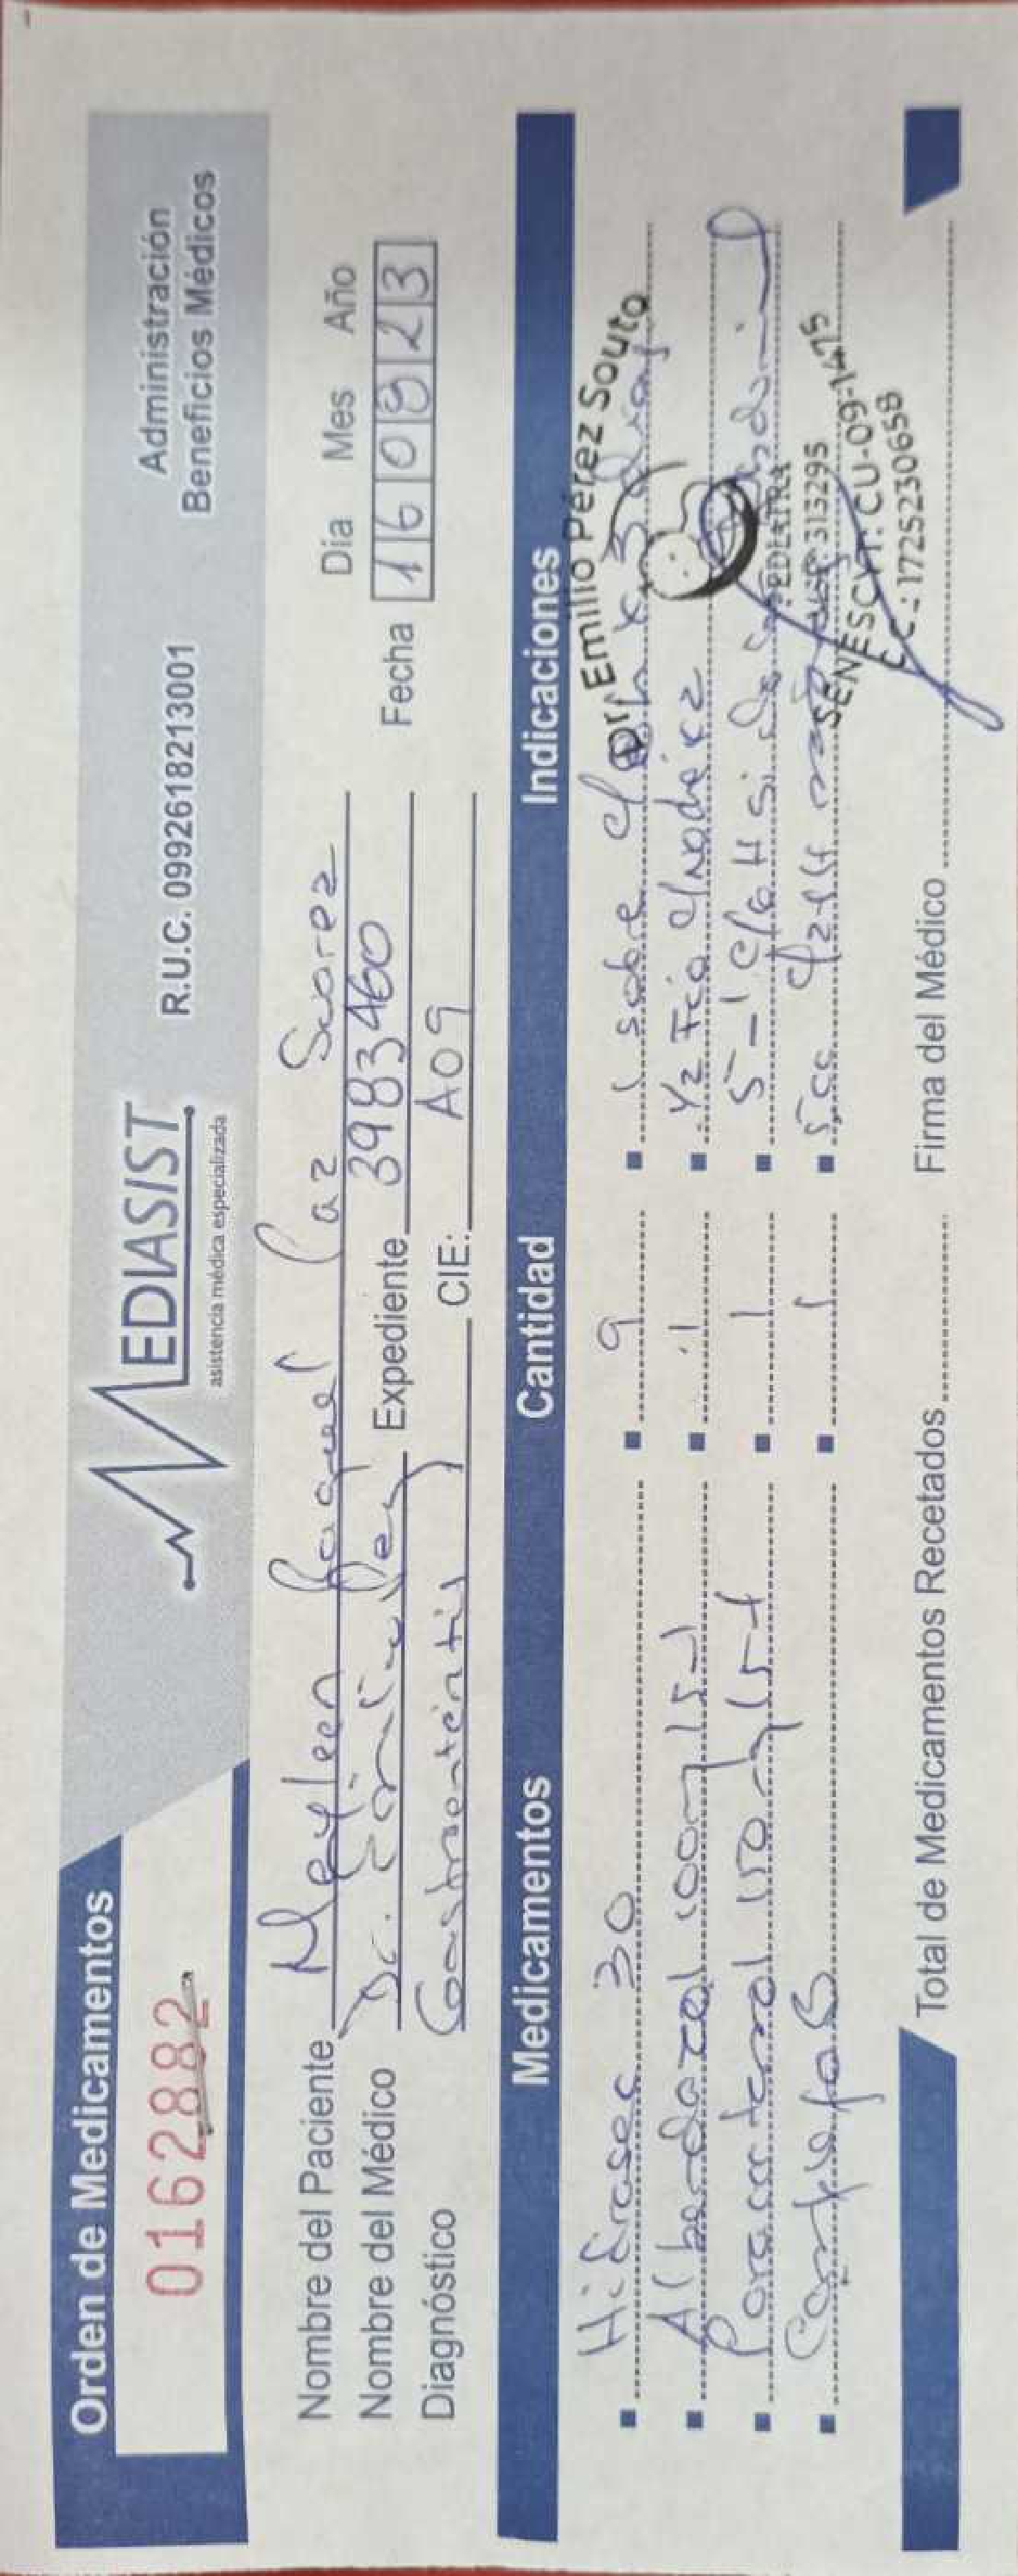 Orden de Medicamentos
0162882
MEDIASIST
asistencia médica especializada
R.U.C. 0992618213001
Administración
Beneficios Médicos
Nombre del Paciente Mayleen Raquel Paz Suarez
Día Mes Año
Nombre del Médico Dr. Emilio Perez Expediente 3983460 Fecha 16 08 23
Diagnóstico Gastroenteritis CIE: A09
Medicamentos Cantidad Indicaciones
Hidrasec 30 9 1 sobre c/ 8h x 3
Albendazol 100mg/5ml 1 1/2 Fco c/ noche x 2
Paracetamol 150mg/5ml 1 5 c/6H Si
Complejo B 1 5cc c/24H
Dr Emilio Pérez Souto
PEDIATRA
MSP: 313295
SENESCYT: CU-09-1475
C.C.: 1725230658
Total de Medicamentos Recetados Firma del Médico